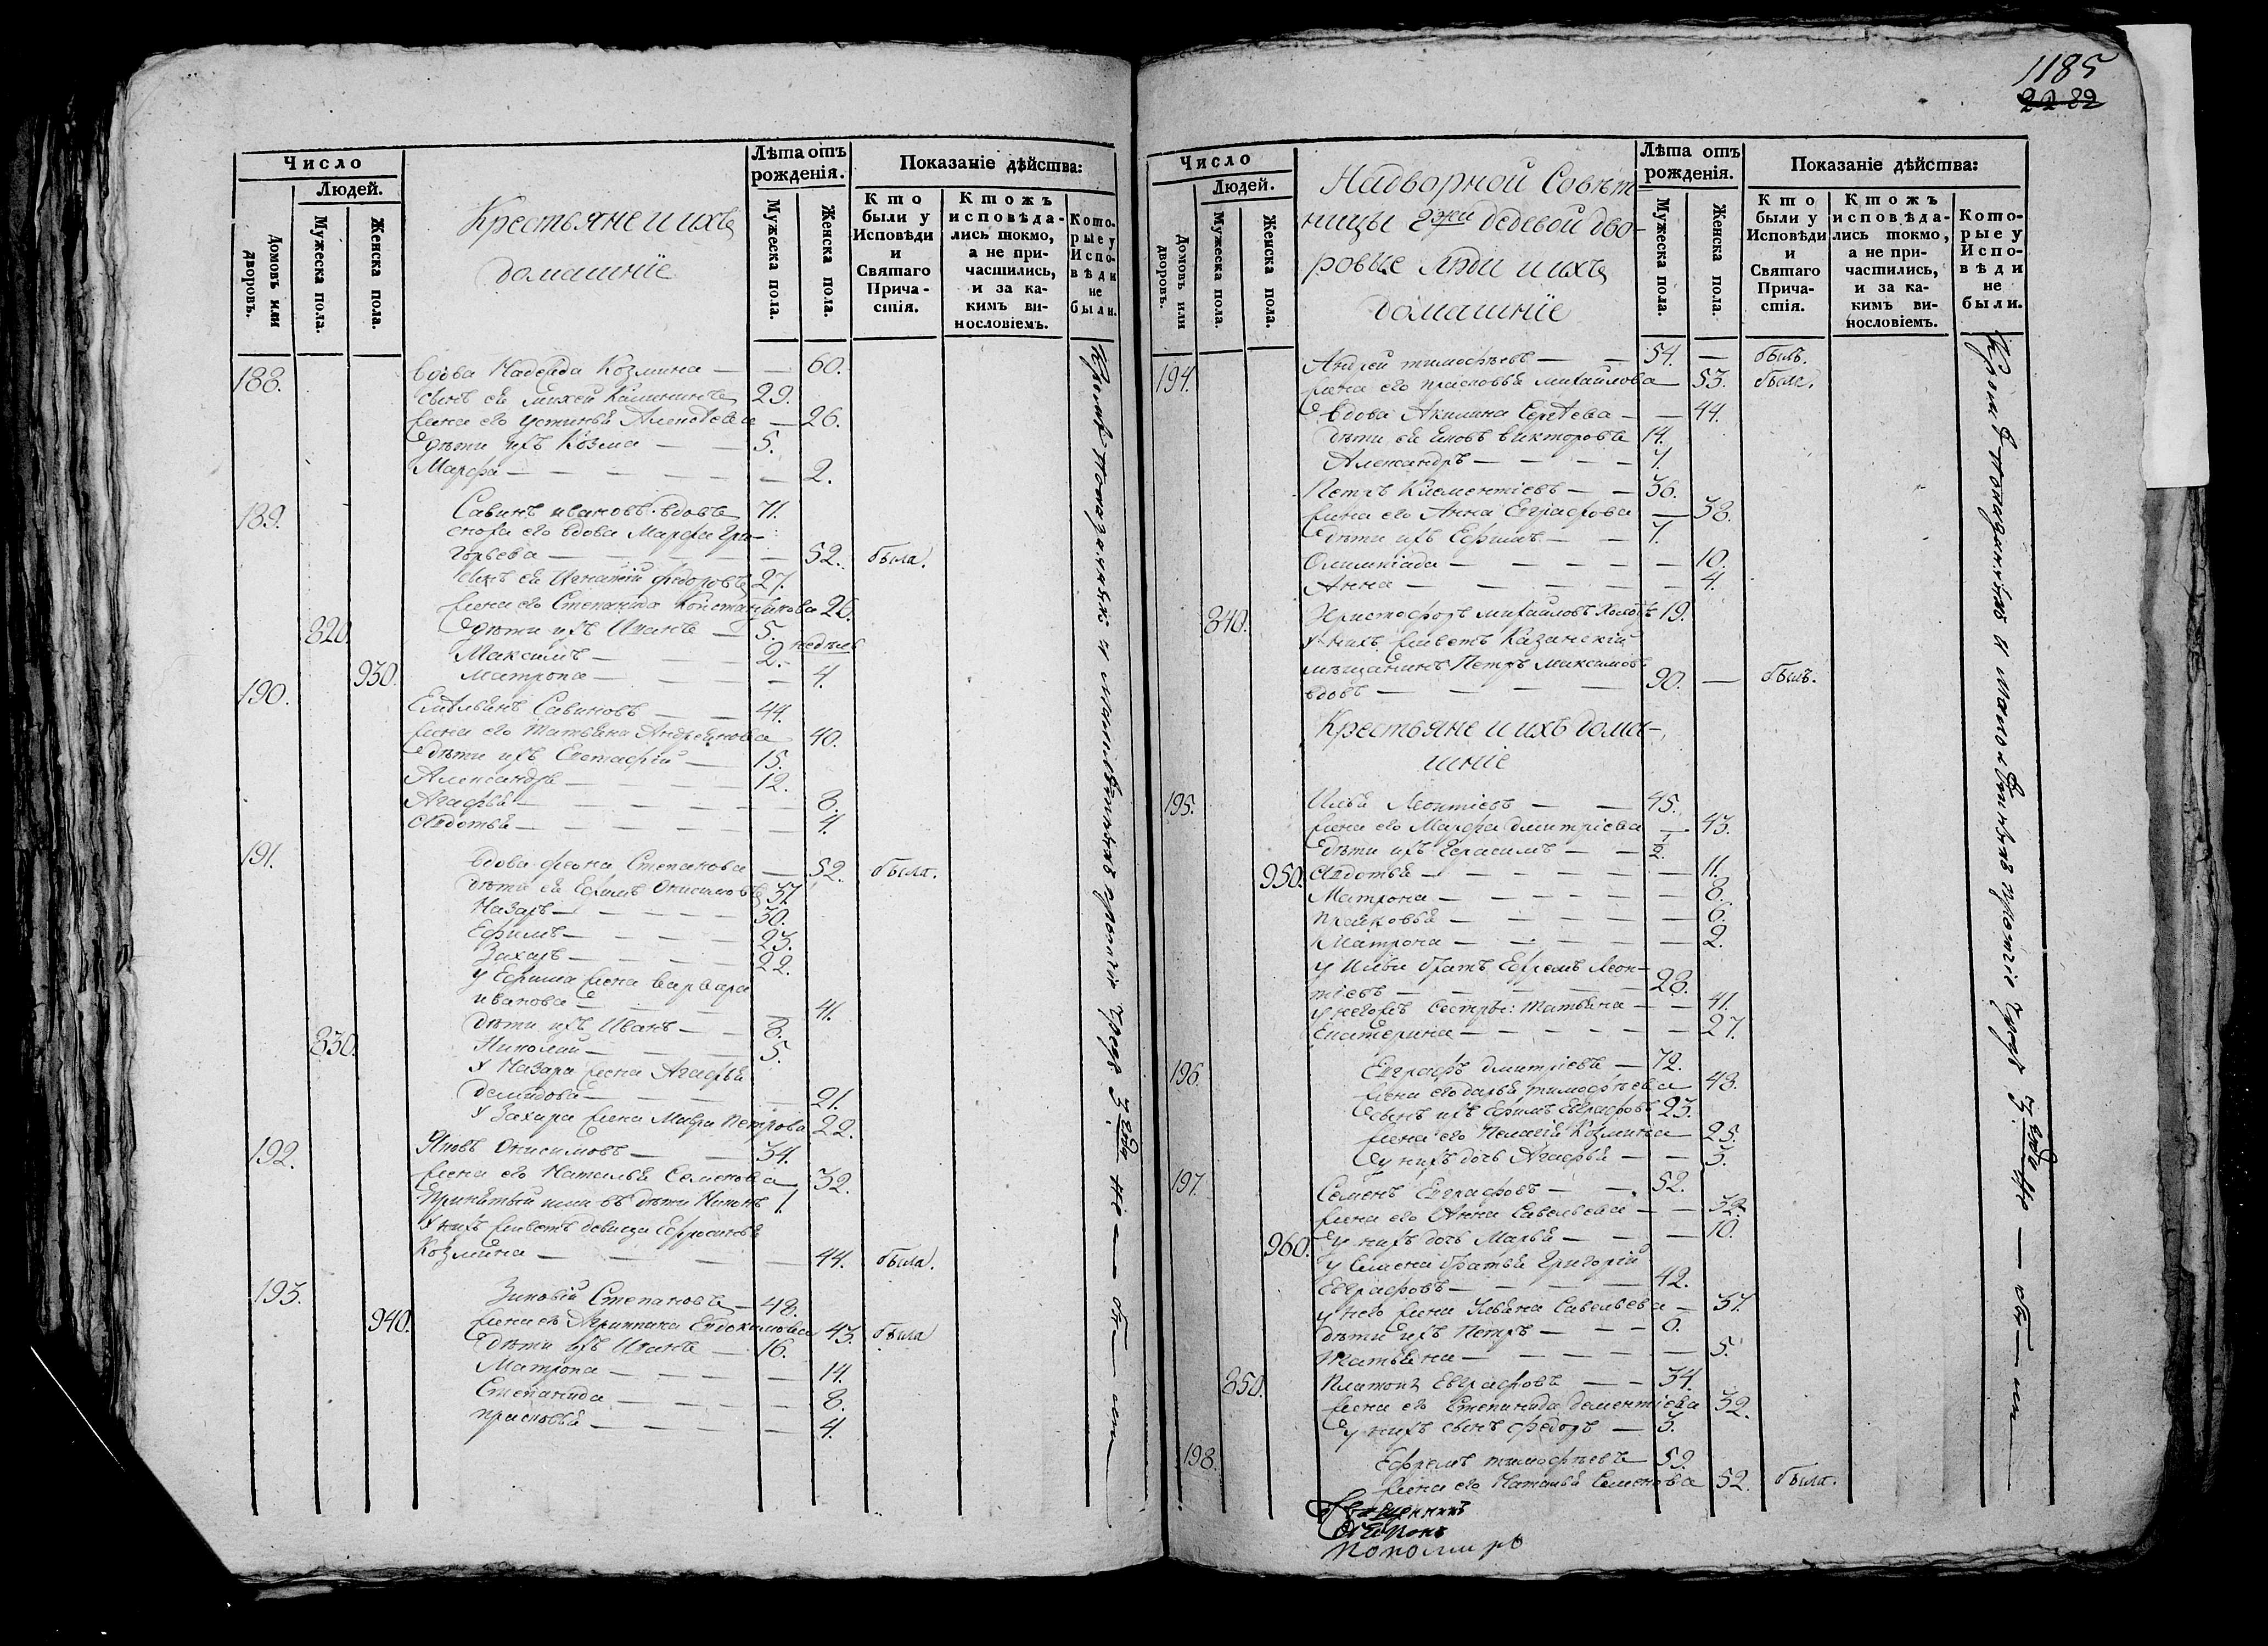 Число
Людей.
Домовъ или дворовъ.
Мужеска пола.
Женска пола.
Крестьяне и ихъ
домашнїе
Лѣта отъ рожденія.
Мужеска пола.
Женска пола.
Показаніе дѣйства:
Кто были у Исповѣди и Святаго Причастія.
Ктожъ исповѣдались токмо, а не причастились, и за какимъ винословіемъ.
Которые у Исповѣди не были.
188. вдова Надежда Козмина — 60.
сынъ ея Михей Калининъ 29.
жена его Устинья Алексѣева — 26.
дѣти ихъ Козма — 5.
Марфа — 2.
189. Савинъ Ивановъ вдовъ 71.
сноха его вдова Марфа Гри-
горьева — 52. была.
сынъ ея Игнатїй Федоровъ 27.
жена его Степанида Константинова 26.
820. дѣти ихъ Иванъ — 5.
Максимъ — 2. недѣль
930. Матрона — 4.
190. Емельянъ Савиновъ — 44.
жена его Татьяна Андреянова 40.
дѣти ихъ Евстафїй — 15.
Александръ — 12.
Агафья — 8.
Авдотья — 4.
191. вдова Феона Степанова — 52. была.
дѣти ея Ефимъ Онисимовъ 37.
Назаръ — 30.
Ефимъ — 23.
Захаръ — 22.
у Ефима жена Варвара
Иванова — 41.
дѣти ихъ Иванъ — 8.
830. Николай — 5.
у Назара жена Агафья
Демидова — 21.
у Захара жена Мавра Петрова 22.
192. Яковъ Онисимовъ — 34.
жена его Наталья Семенова 32.
Принятый ими въ дѣти Никонъ 1.
у нихъ живетъ девица Ефросинья
Козмина — 44. была.
193. Зиновїй Степановъ — 48.
940. жена его Агрипина Евдокимова 43. была
дѣти ихъ Иванъ — 16.
Матрона — 14.
Степанида — 8.
Прасковья — 4.
Кромѣ показанныхъ и малолѣтныхъ прочїи чрезъ 3 года не — бы — ли
1185
2282
Число
Людей.
Домовъ или дворовъ.
Мужеска пола.
Женска пола.
Надворной Совѣт-
ницы Гжи Дедевой дво-
ровые люди и ихъ
домашнїе
Лѣта отъ рожденія.
Мужеска пола.
Женска пола.
Показаніе дѣйства:
Кто были у Исповѣди и Святаго Причастія.
Ктожъ исповѣдались токмо, а не причастились, и за какимъ винословіемъ.
Которые у Исповѣди не были.
194. Андрей Тимофѣевъ — 54. — былъ.
жена его Прасковья Михайлова — 53. была.
вдова Акилина Сергѣева — 44.
дѣти ея Яковъ Викторовъ 14.
Александръ — 7.
Петръ Клементїевъ — 36.
жена его Анна Евграфова — 38.
дѣти ихъ Ефимъ — 7.
Олимпїада — 10.
Анна — 4.
840. Христофоръ Михайловъ холостъ 19.
у нихъ живетъ Казанскїй
мѣщанинъ Петръ Максимовъ
вдовъ — 90. — былъ.
Крестьяне и ихъ дома-
шнїе
195. Илья Леонтїевъ — 45.
жена его Марфа Дмитрїева — 43.
дѣти ихъ Герасимъ — 1/2.
950. Авдотья — 11.
Матрона — 8.
Прасковья — 6.
Матрона — 2.
у Ильи братъ Ефремъ Леон-
тїевъ — 28.
у негожъ сестры: Татьяна — 41.
Екатерина — 27.
196. Евграфъ Дмитрїевъ — 72.
жена его Дарья Тимофѣева 48.
сынъ ихъ Ефимъ Евграфовъ 23.
жена его Пелагїя Козмина 25.
у нихъ дочь Агафья — 3.
197. Семенъ Евграфовъ — 52.
жена его Анна Савельева — 32.
960. у нихъ дочь Марья — 10.
у Семена братья Григорїй
Евграфовъ — 42.
у него жена Ульяна Савельева — 37.
дѣти ихъ Петръ — 0.
Татьяна — 5.
850. Платонъ Евграфовъ — 34.
жена его Степанида Дементїева 32.
у нихъ сынъ Федоръ — 3.
198. Ефремъ Тимофѣевъ 59.
жена его Наталья Семенова 52. была.
Кромѣ показанныхъ и малолѣтныхъ прочїе чрезъ 3 года не — бы — ли
Священникъ
Дїаконъ
Пономарь